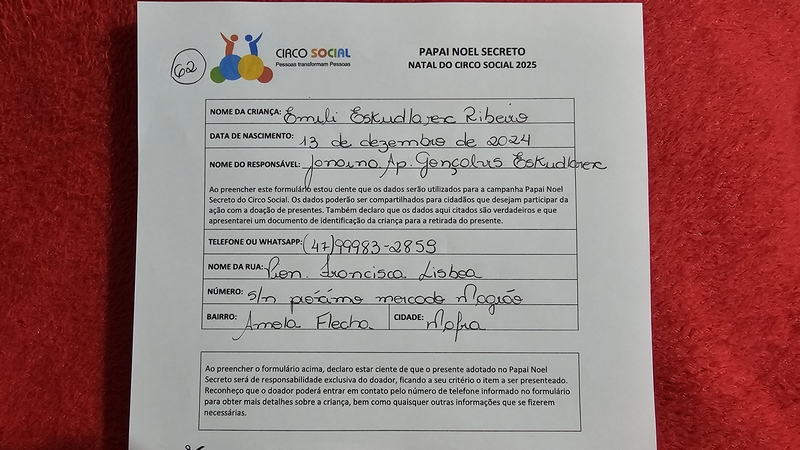 62
CIRCO SOCIAL
Pessoas transformam Pessoas
PAPAI NOEL SECRETO
NATAL DO CIRCO SOCIAL 2025
NOME DA CRIANÇA: Emili Eskudlarex Ribeiro
DATA DE NASCIMENTO: 13 de dezembro de 2024
NOME DO RESPONSÁVEL: Janaina Ap. Gonçalves Eskudlarex
Ao preencher este formulário estou ciente que os dados serão utilizados para a campanha Papai Noel
Secreto do Circo Social. Os dados poderão ser compartilhados para cidadãos que desejam participar da
ação com a doação de presentes. Também declaro que os dados aqui citados são verdadeiros e que
apresentarei um documento de identificação da criança para a retirada do presente.
TELEFONE OU WHATSAPP: (47)99983-2859
NOME DA RUA: Pion. Francisca Lisboa
NÚMERO: s/n próximo mercado Magrão
BAIRRO: Amola Flecha CIDADE: Mafra
Ao preencher o formulário acima, declaro estar ciente de que o presente adotado no Papai Noel
Secreto será de responsabilidade exclusiva do doador, ficando a seu critério o item a ser presenteado.
Reconheço que o doador poderá entrar em contato pelo número de telefone informado no formulário
para obter mais detalhes sobre a criança, bem como quaisquer outras informações que se fizerem
necessárias.